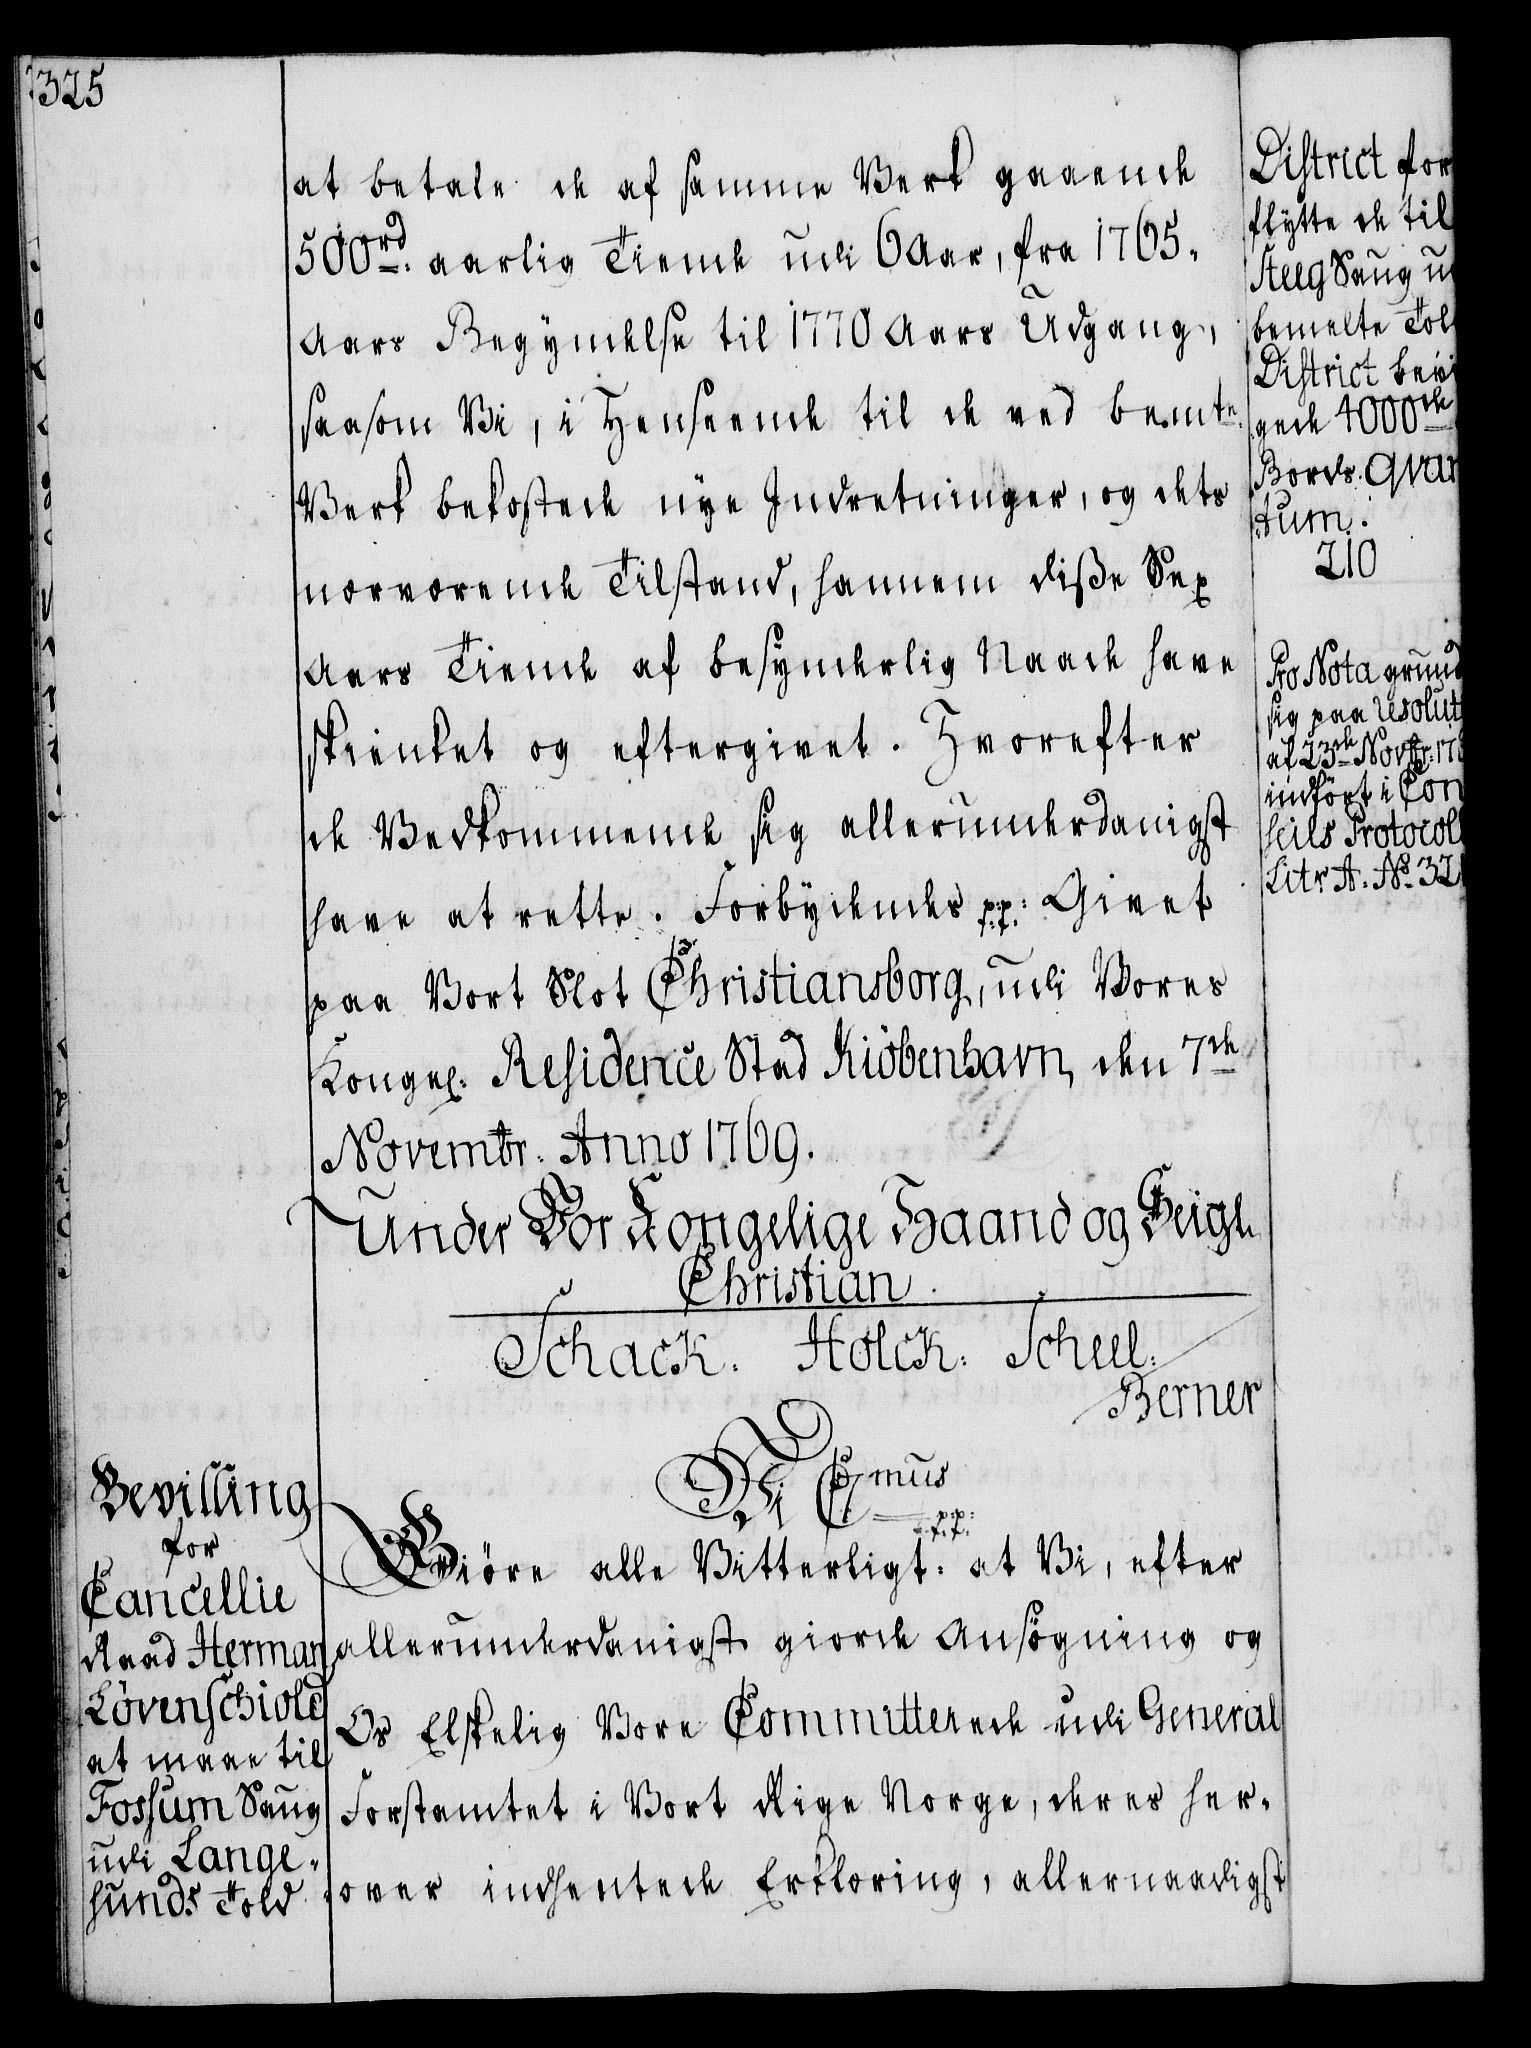 325
at betale de af samme Verk gaaende
500rd. aarlig Tiende udi 6 Aar, fra 1765.
Aars Begyndelse til 1770 Aars Udgang,
saasom Vi, i Henseende til de ved bemte
Verk bekostede nye Indretninger, og dets
nærværende Tilstand, hannem disse Sex
Aars Tiende af besynderlig Naade have
skienket og eftergivet. Hvorefter
de Vedkommende sig allerunderdanigst
have at rette. Forbydendes p:p: Givet
paa Vort Slot Christiansborg, udi Vores
Kongel. Residence Stad Kiöbenhavn, den 7de
Novembr. Anno 1769.
Under Vor Kongelige Haand og Seigl.
Christian.
Schack. Holck: Scheel:
Berner
Bevilling
for
Cancellie
Raad Herman
Lövenschiold
at maae til
Fossum Saug
udi Lange-
sunds Told
Vi Cmus
p.p:
Giöre alle Vitterligt: at Vi, efter
allerunderdanigst giorde Ansögning og
Os Elskelig Vore Committerede udi General
Forstamtet i Vort Rige Norge, deres her-
over indhentede Erklæring, allernaadigst
District for
flytte de til
Steeg Saug u
bemelte Tol
District bevi
gede 4000de
Bords. Qvan
tum.
210
Pro Nota grund
sig paa resolut
af 23de Novbr: 17
indfört i Con
seils Protocol
Litr A. No. 32